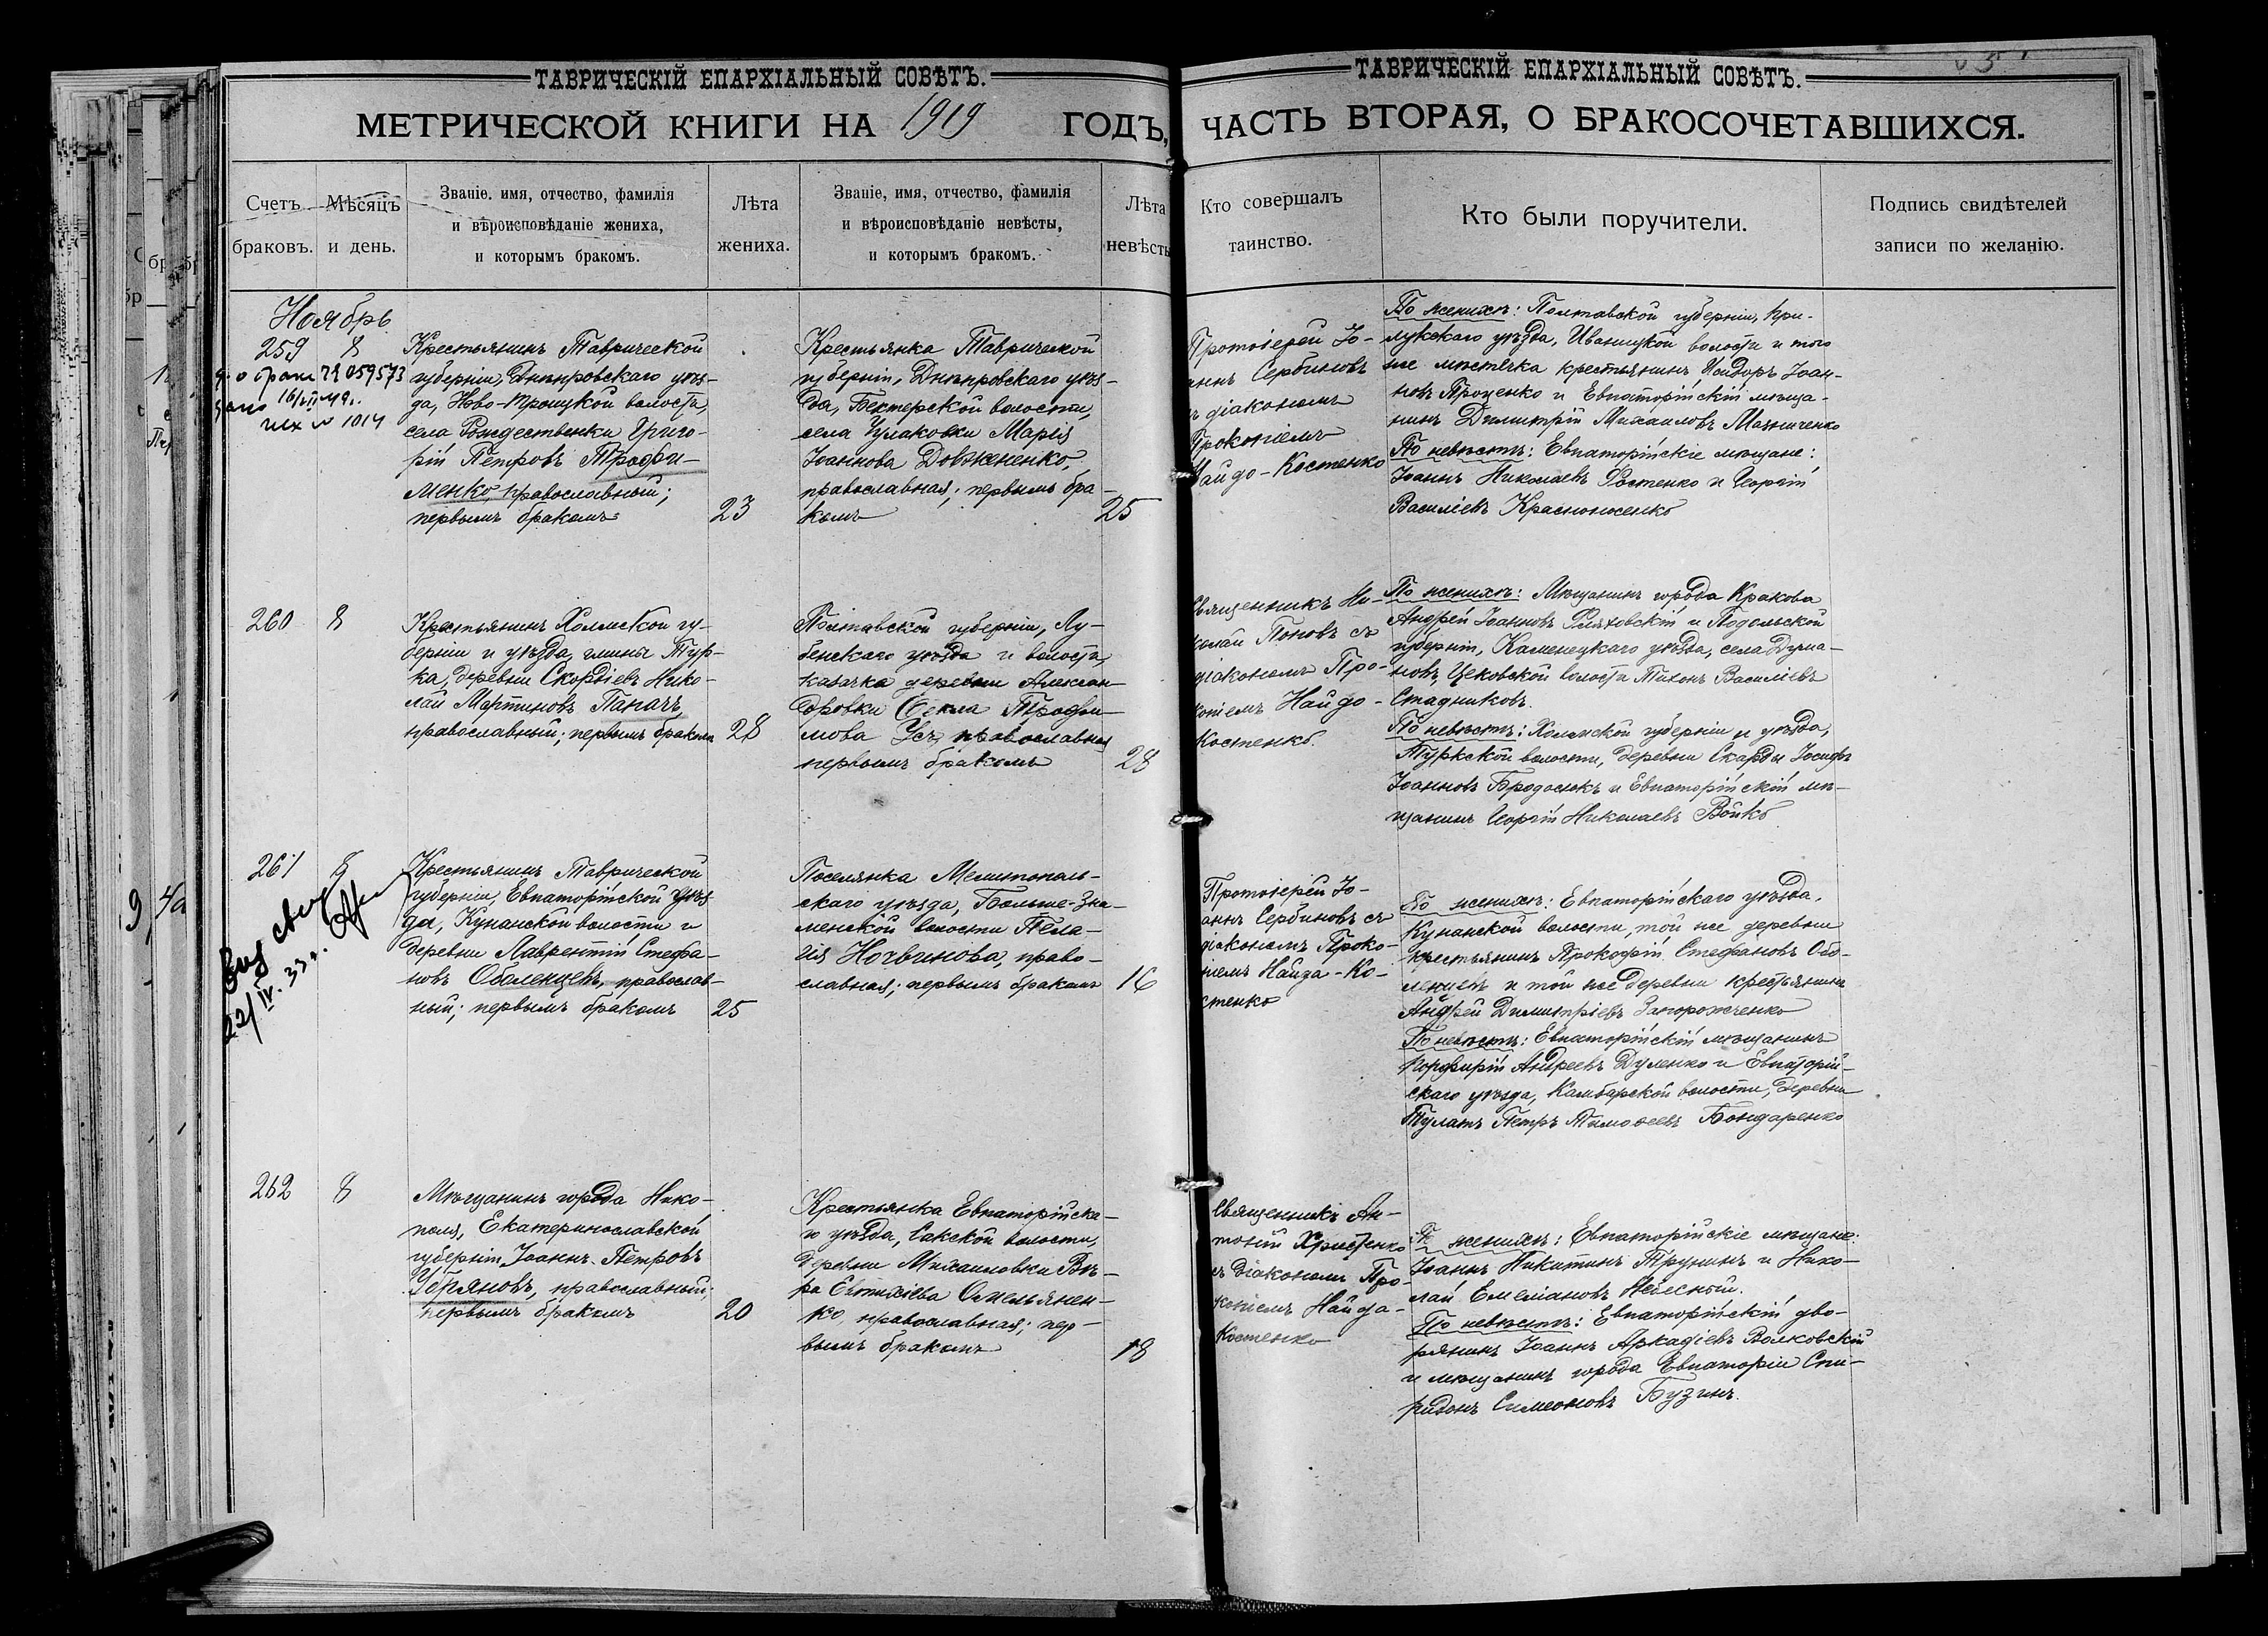 ТАВРИЧЕСКІЙ ЕПАРХІАЛЬНЫЙ СОВѢТЪ.
МЕТРИЧЕСКОЙ КНИГИ НА 1919 ГОДЪ,
Счетъ браковъ.
Мѣсяцъ и день.
Званіе, имя, отчество, фамилія
и вѣроисповѣданіе жениха,
и которымъ бракомъ.
Лѣта жениха.
Званіе, имя, отчество, фамилія
и вѣроисповѣданіе невѣсты,
и которымъ бракомъ.
Лѣта невѣсты
ТАВРИЧЕСКІЙ ЕПАРХІАЛЬНЫЙ СОВѢТЪ.
ЧАСТЬ ВТОРАЯ, О БРАКОСОЧЕТАВШИХСЯ.
Кто совершалъ
таинство.
Кто были поручители.
Подпись свидѣтелей
записи по желанію.
Ноябрь
259 8
о браке 059573
1014
Крестьянинъ Таврической
губерніи, Днѣпровскаго уѣз-
да, Ново-Троицкой волости,
села Рождественки Григо-
рій Петровъ Трофи-
менко, православный;
первымъ бракомъ
23
Крестьянка Таврической
губерніи, Днѣпровскаго уѣз-
да, Бехтерской волости,
села Чулаковки Марія
Іоаннова Довженко,
православная; первымъ бра-
комъ
25
Протоіерей Іо-
аннъ Сербиновъ
съ діакономъ
Прокопіемъ
Найдо-Костенко
По женихѣ: Полтавской губерніи, При-
лукскаго уѣзда, Иваницкой волости и того
же мѣстечка крестьянинъ Исидоръ Іоан-
новъ Проценко и Евпаторійскій мѣща-
нинъ Димитрій Михаиловъ Махниченко
По невѣстѣ: Евпаторійскіе мѣщане:
Іоаннъ Николаевъ Ростенко и Георгій
Василіевъ Красноженко
260 8
Крестьянинъ Холмской гу-
берніи и уѣзда, гмины Тур-
ка, деревни Скордіевъ Нико-
лай Мартиновъ Паначъ,
православный; первымъ бракомъ
28
Полтавской губерніи, Лу-
бенскаго уѣзда и волости,
казачка деревни Алексан-
дровки Ѳекла Трофи-
мова Усъ, православная
первымъ бракомъ
28
Священникъ Ни-
колай Поповъ съ
діакономъ Про-
копіемъ Найдо-
Костенко.
По женихѣ: Мѣщанинъ города Кракова
Андрей Іоанновъ Ляховскій и Подольской
губерніи, Каменецкаго уѣзда, села Дума-
новъ, Цековской волости Тихонъ Василіевъ
Стадниковъ.
По невѣстѣ: Холмской губерніи и уѣзда,
Туркской волости, деревни Скарды Іосифъ
Іоанновъ Бродосюкъ и Евпаторійскій мѣ-
щанинъ Георгій Николаевъ Войко
261 8
22/IV. 33 г.
Крестьянинъ Таврической
губерніи, Евпаторійской уѣз-
да, Кунанской волости и
деревни Лаврентій Стефа-
новъ Оболенцевъ, православ-
ный; первымъ бракомъ
25
Поселянка Мелитополь-
скаго уѣзда, Больше-Зна-
менской волости Пела-
гія Ночвинова, право-
славная; первымъ бракомъ
16
Протоіерей Іо-
аннъ Сербиновъ съ
діакономъ Проко-
піемъ Найда-Ко-
стенко
По женихѣ: Евпаторійскаго уѣзда,
Кунанской волости, той же деревни
крестьянинъ Прокофій Стефановъ Обо-
ленцевъ и той же деревни крестьянинъ
Андрей Димитріевъ Запорожченко
По невѣстѣ: Евпаторійскій мѣщанинъ
Порфирій Андреевъ Дуленко и Евпаторій-
скаго уѣзда, Камбарской волости, деревни
Тулатъ Петръ Тимоѳеевъ Бондаренко
262 8
Мѣщанинъ города Нико-
поля, Екатеринославской
губерніи Іоаннъ Петровъ
православный;
первымъ бракомъ
20
Крестьянка Евпаторійска-
го уѣзда, Сакской волости,
деревни Михаиловки Вѣ-
ра Евтихіева Омельянен-
ко, православная; пер-
вымъ бракомъ
18
Священникъ Ан-
тоній Христенко
съ діакономъ Про-
копіемъ Найда-
Костенко
По женихѣ: Евпаторійскіе мѣщане:
Іоаннъ Никитинъ Трунинъ и Нико-
лай Емеліановъ Небесный.
По невѣстѣ: Евпаторійскій дво-
рянинъ Іоаннъ Аркадіевъ Волковскій
и мѣщанинъ города Евпаторіи Спи-
ридонъ Симеоновъ Бузинъ.